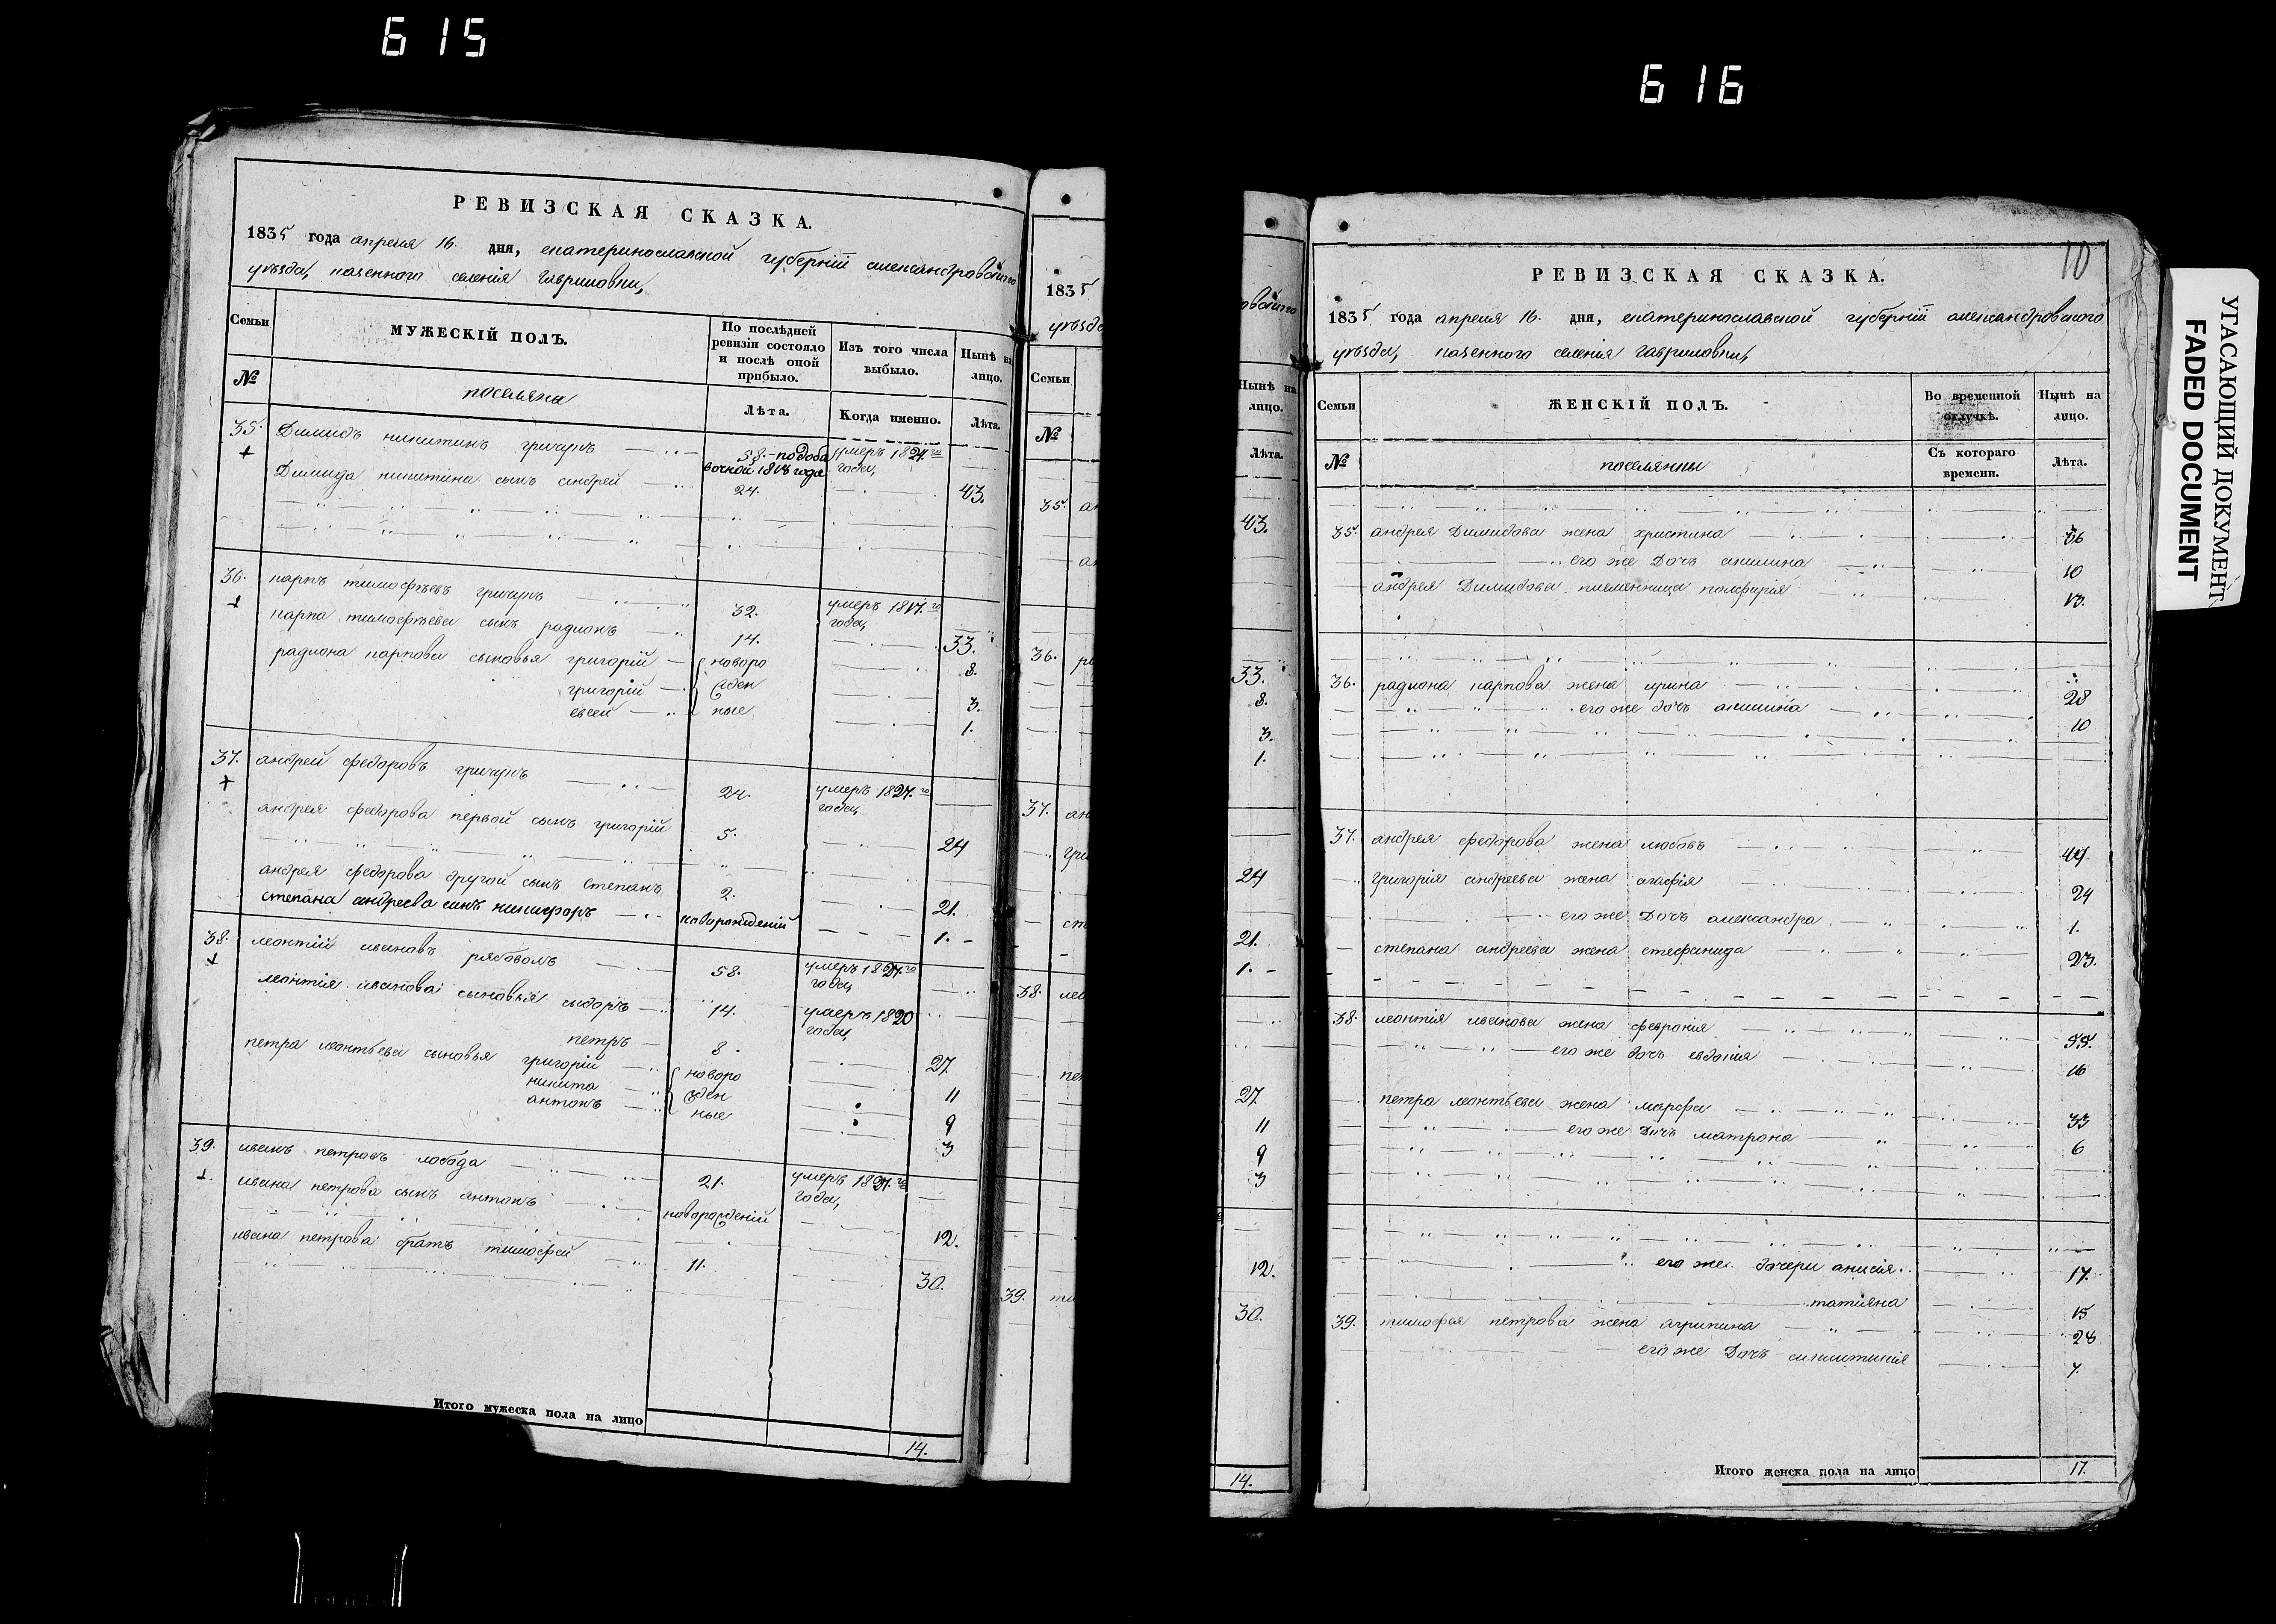 615
616
РЕВИЗСКАЯ СКАЗКА.
1835 года апреля 16. дня, екатеринославской губерній александровского
уезда, казенного селенія Гавриловки,
Семьи
МУЖЕСКІЙ ПОЛЪ.
По послѣдней ревизіи состояло и послѣ оной прибыло.
Изъ того числа выбыло.
Нынѣ на лицо.
№
поселяне
Лѣта.
Когда именно.
Лѣта.
35. Димидъ никитинъ гричунъ 58.-подоба вочной 1818 года умеръ 1824 го года,
Димида никитина сынъ андрей 24. 43.
36. карпъ тимофѣевъ гричунъ 32. умеръ 1817. го года,
карпа тимофѣева сынъ радионъ 14. 33.
радиона карпова сыновья григорій новоро 8.
григорій жден 3.
евсей ные 1.
37. андрей федоровъ гричунъ 24. умеръ 1827. го года,
андрея федорова первой сынъ григорій 5. 24
андрея федорова другой сынъ степанъ 2. 21.
степана андреева синъ никифоръ новорожденій 1.-
38. леонтій ивановъ рябоволъ 58. умеръ 1827. го года,
леонтія иванова сыновья сыдоръ 14. умеръ 1820 года,
петръ 8. 27
петра леонтьева сыновья григорій новоро 11
никита жден 9
антонъ ные 3
39. иванъ петровъ лобода 21. умеръ 1827. го года,
ивана петрова сынъ антонъ новорожденій 12.
ивана петрова братъ тимофей 11. 30.
Итого мужеска пола на лицо 14.
1835
уезда
Семьи
№
35.
36.
37.
38.
39.
Нынѣ на лицо.
Лѣта.
43.
33.
8.
3.
1.
24
21.
1.-
27
11
9
3
12.
30.
14.
10
РЕВИЗСКАЯ СКАЗКА.
1835 года апреля 16. дня, екатеринославской губерній александровского
уезда, казенного селенія гавриловки,
Семьи
ЖЕНСКІЙ ПОЛЪ.
Во временной отлучкѣ.
Нынѣ на лицо.
№
поселянки
Съ котораго времени.
Лѣта.
35. андрея Димидова жена христина 36
его же Дочъ акилина 10
андрея Димидова племенница порфирія 13.
36. радиона карпова жена ирина 28
его же дочъ акилина 10
37. андрея федорова жена любовъ 44
григорія андреева жена агафія 24
его же Дочъ александра 1.
степана андреева жена стефанида 23.
38. леонтія иванова жена феврония 55.
его же дочъ евдокія 16
петра леонтьева жена марфа 33
его же Дочъ матрона 6
его же дочери анисія 17.
татияна 15
39. тимофея петрова жена агрипина 28
его же Дочъ 7.
Итого женска пола на лицо 17.
УГАСАЮЩИЙ ДОКУМЕНТ
FADED DOCUMENT